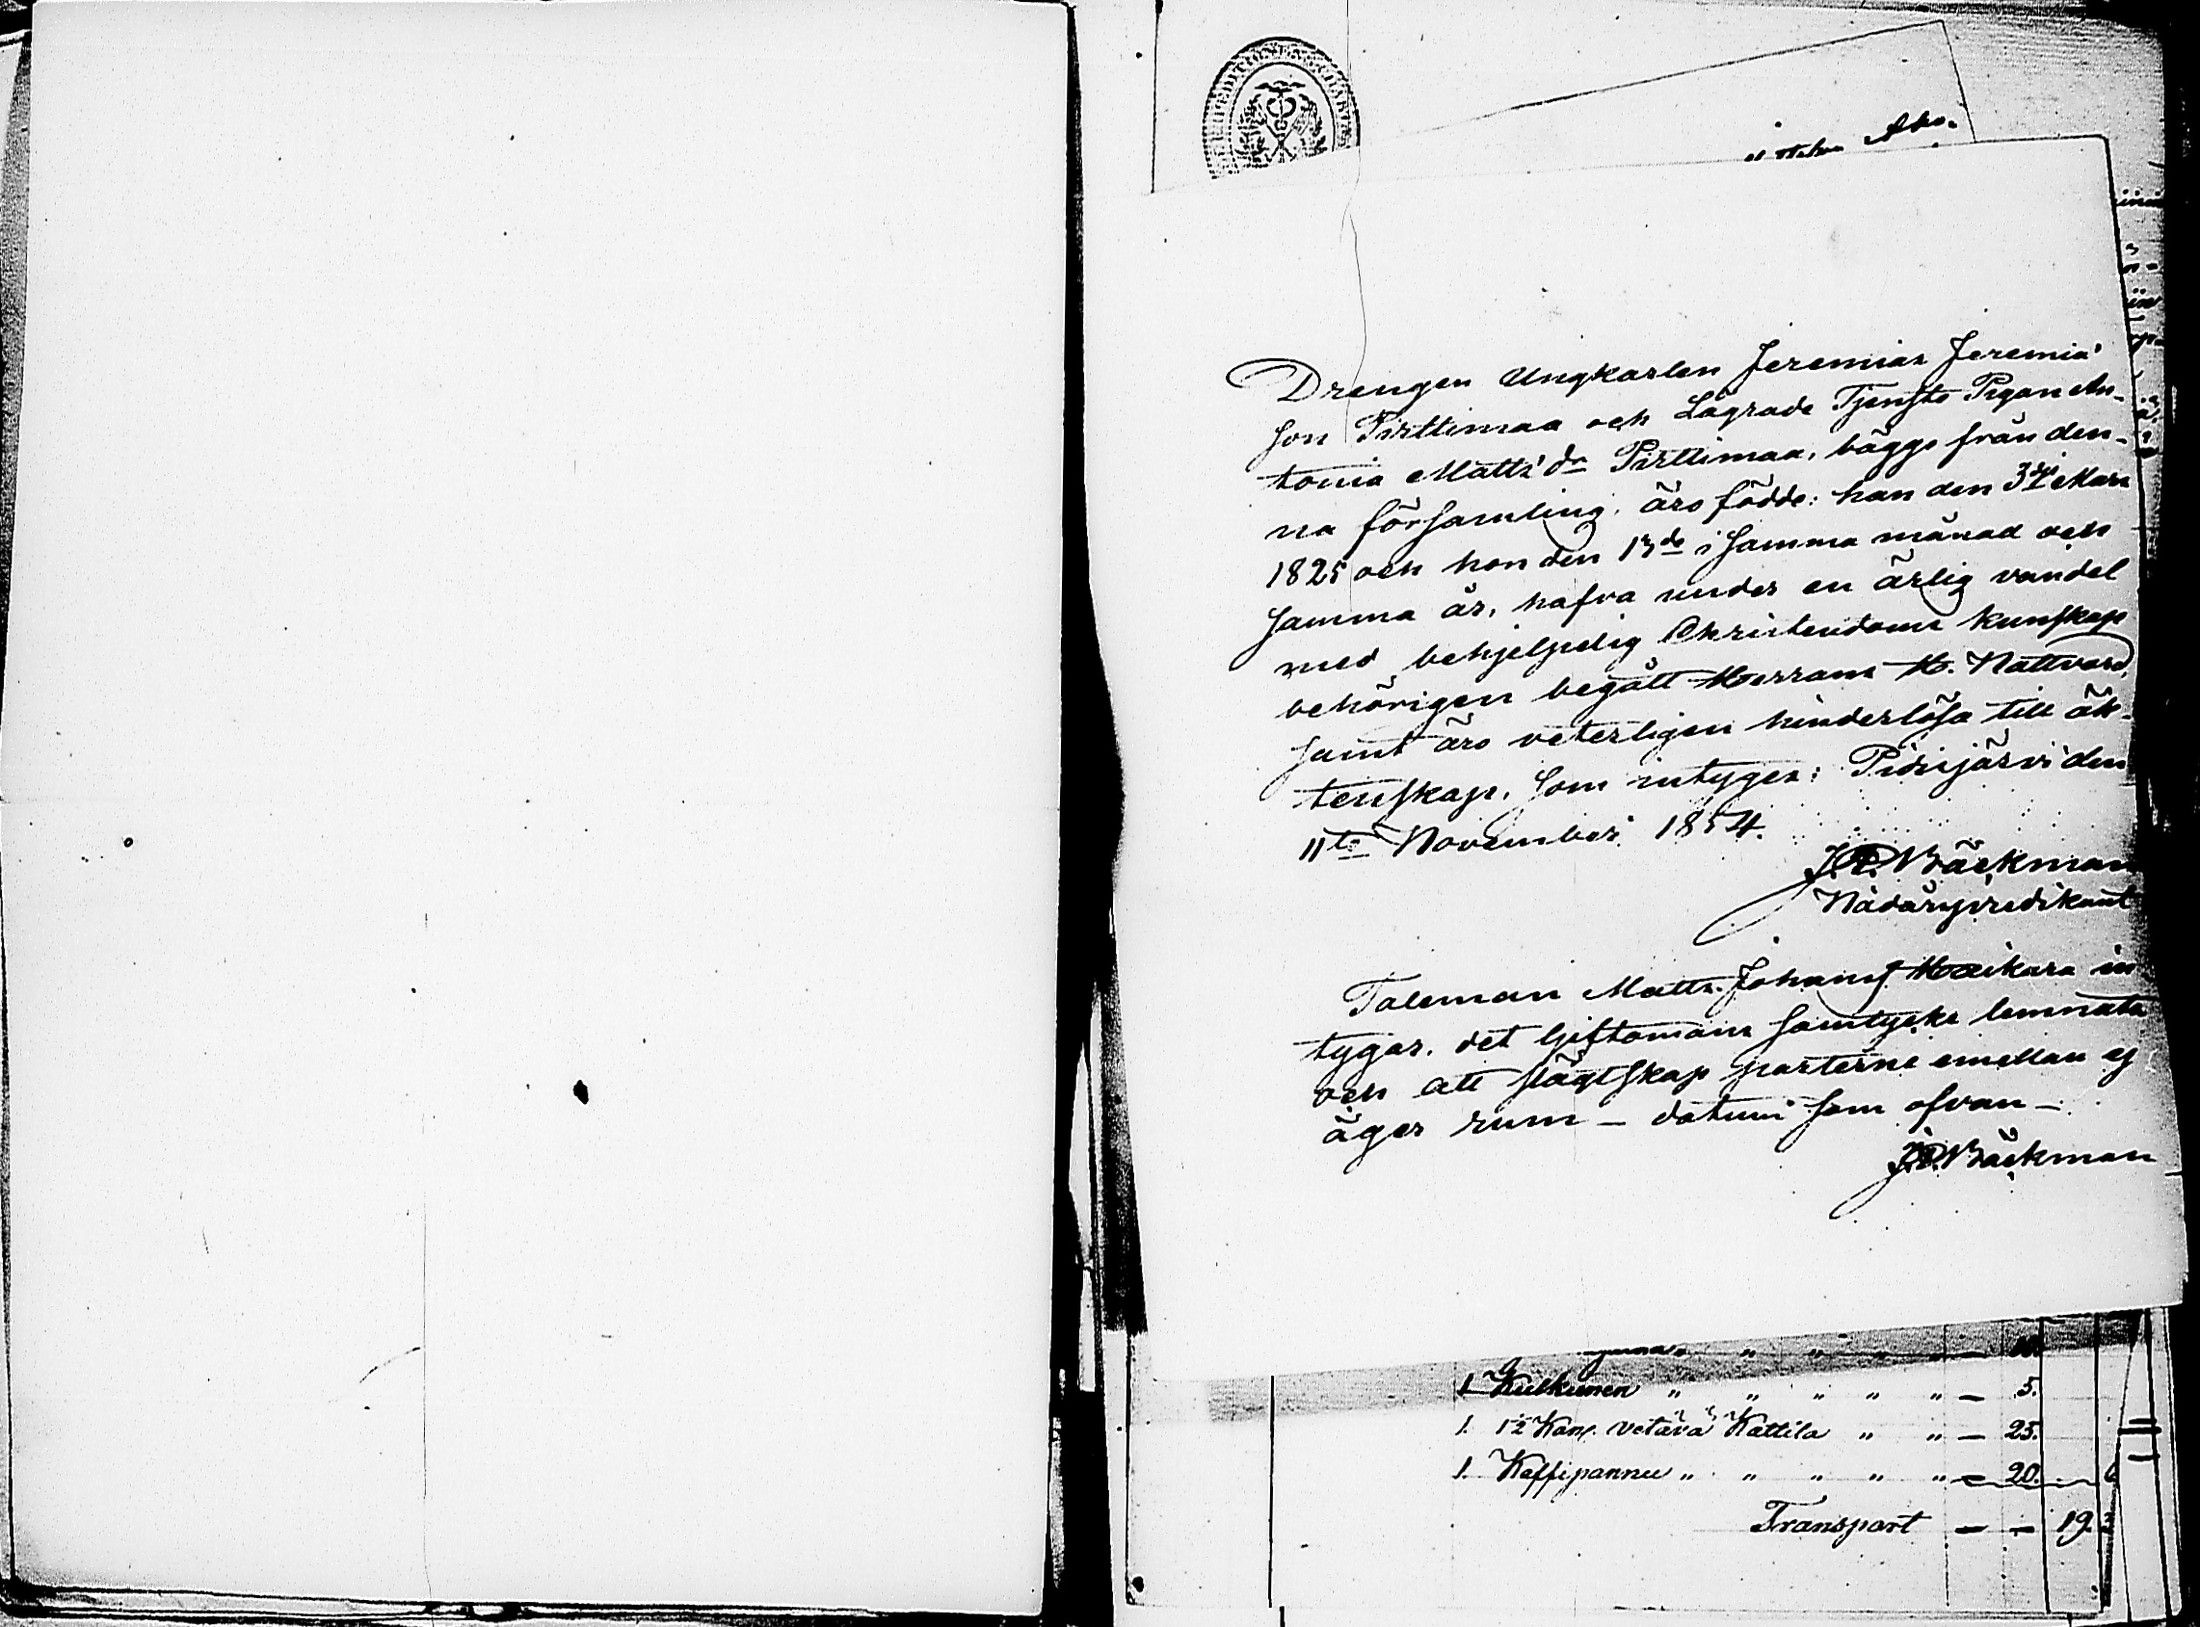 Drengen Ungkarlen Jeremias Jeremia'
son Pirttimaa och Lägrade Tjensto Pigan An-
tonia Matts' dr Pirttimaa, bägge från den-
na församling, äro födde: han den 3dje Mars
1825 och hon den 13de i samma månad och
samma år, hafva under en ärlig vandel
med behjelpelig Christendoms kunskap
behörigen begått Herrans H. Nattvard,
samt äro veterligen hinderlösa till äk-
tenskap, som intygar: Pidisjärvi den
11te November 1854.
J. P. Bäckman
Nådårspredikant
Taleman Matts Johans. Haikara in-
tygar, det Giftomans samtycke lemnats
och att slägtskap parterne emellan ej
äger rum – datum som ofvan –
J. P. Bäckman
1 Kulkunen " " " " " — 5.
1. 1½ Kan. vetävä Kattila " " — 25.
1. Kaffipannu " " " " " — 20.
Transport — — 19